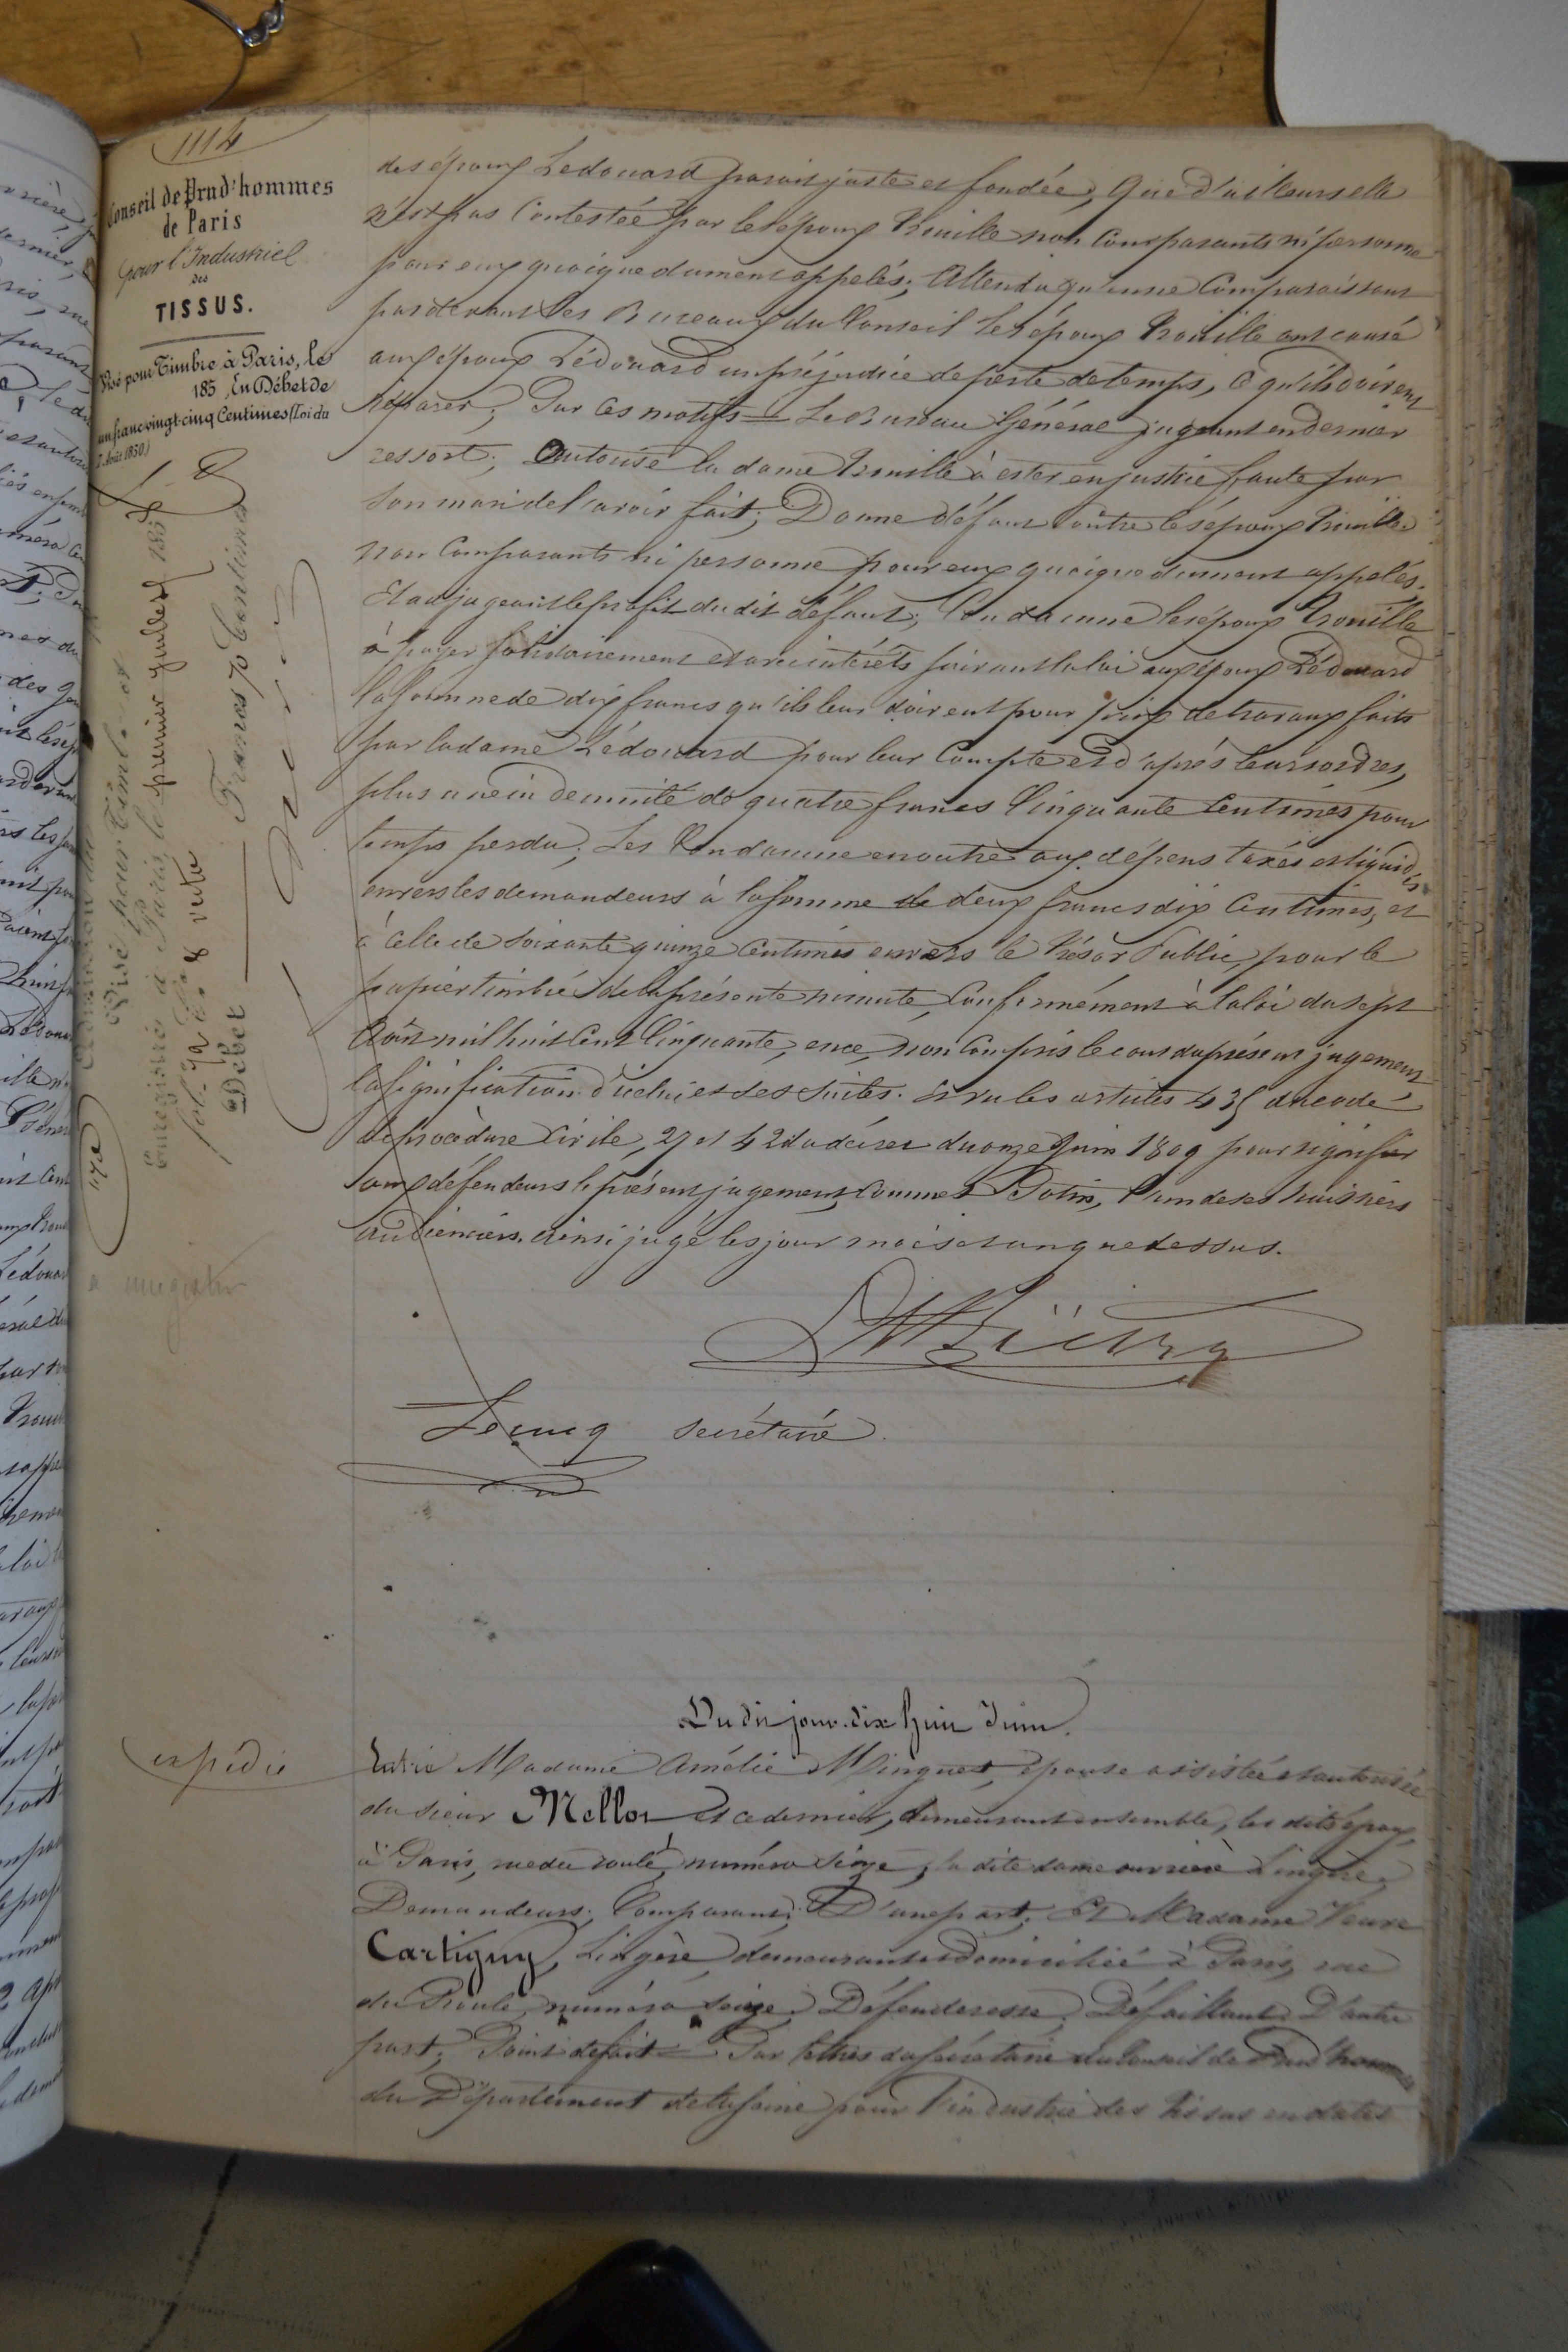 1114
Conseil de Prud'hommes
de Paris
pour l'Industriel
des
TISSUS.
Visé pour Timbre à Paris, le
185 , En Débet de
un franc vingt-cinq Centimes (Loi du
7 Août 1850)
Visé pour Timbre et
Enregistré à Paris, le premier juillet 185
fol. 8 verso
Débet
Francs 70 Centimes
des époux Ledouard parait juste et fondée, Que d'ailleurs elle
n'est pas contestée par les époux Trouille non comparants ni personne
pour eux quoique dument appelés; Attendu qu'en ne comparaissant
pas devant les Bureaux du Conseil les époux Trouille ont causé
aux époux Lédouard un préjudice de perte de temps, ce qu'ils doivent
réparer; Par ces motifs = Le Bureau Général jugeant en dernier
ressort; Autorise la dame Trouille à ester en justice faute par
son mari de l'avoir fait; Donne défaut contre les époux Trouille
non comparants ni personne pour eux quoique dument appelés,
Et adjugeant le profit du dit défaut; Condamne les époux Trouille
à payer solidairement et avec intérêts suivant la loi aux époux Lédouard
la somme de dix francs qu'ils leur doivent pour prix de travaux faits
par la dame Lédouard pour leur compte et d'après leurs ordres,
plus une indemnité de quatre francs cinquante centimes pour
temps perdu; Les condamne en outre aux dépens taxés et liquidés
envers les demandeurs à la somme de deux francs dix centimes, et
à celle de soixante quinze centimes envers le Trésor Public, pour le
papier timbré de la présente minute, conformément à la loi du sept
Août mil huit cent cinquante, en ce, non compris le cout du présent jugement
la signification d'icelui et ses suites. Et vu les articles 435 du code
de procédure civile, 27 et 42 du décret du onze Juin 1809 pour signifier
aux défendeurs le présent jugement, commet Potin, l'un de ses huissiers
audienciers. Ainsi jugé les jour mois et an que dessus.
Lecucq secrétaire.
Du dit jour dix huit Juin.
expédié
Entre Madame Amélie Minguet, épouse assistée et autorisée
du sieur Mellor et ce dernier, demeurant ensemble, les dits époux,
à Paris, rue du Roule, numéro seize, la dite dame ouvrière Lingère,
Demandeurs; Comparant; D'une part; Et Madame Veuve
Cartigny, Lingère demeurant et domiciliée à Paris, rue
du Roule, numéro seize; Défenderesse; Défaillant; D'autre
part; Point de fait = Par lettres du secrétaire du Conseil de Prud'hommes
du Département de la Seine pour l'industrie des Tissus en dates